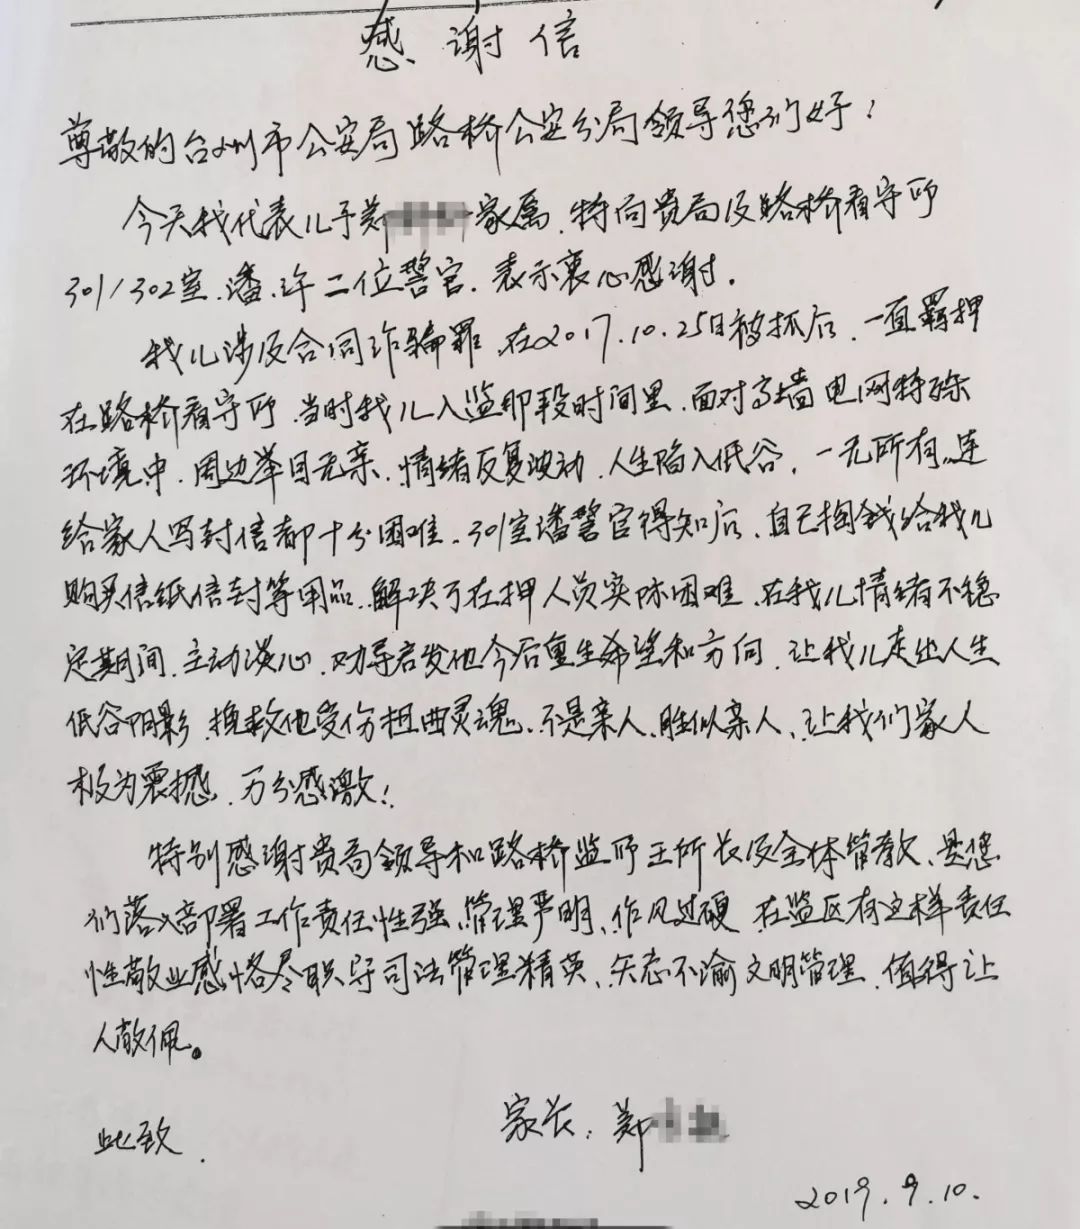 感谢信
尊敬的台州市公安局路桥公安分局领导您们好！
今天我代表儿子郑 家属.特向贵局及路桥看守所
301/302室.潘.许二位警官.表示衷心感谢.
我儿涉及合同诈骗罪.在2017.10.25日被抓后.一直羁押
在路桥看守所.当时我儿入监那段时间里.面对高墙电网特殊
环境中.周边举目无亲.情绪反复波动.人生陷入低谷.一无所有.连
给家人写封信都十分困难.301室潘警官得知后.自己掏钱给我儿
购买信纸信封等用品.解决了在押人员实际困难.在我儿情绪不稳
定期间.主动谈心.劝导启发他今后重生希望和方向.让我儿走出人生
低谷阴影.挽救他受伤扭曲灵魂.不是亲人、胜似亲人、让我们家人
极为震撼.万分感激！
特别感谢贵局领导和路桥监所王所长及全体管教、是您
们落入部署工作责任性强、管理严明、作风过硬 在监区有这样责任
性敬业感恪尽职守司法管理精英、矢志不渝文明管理.值得让
人敬佩。
家长:郑
此致.
2019.9.10.